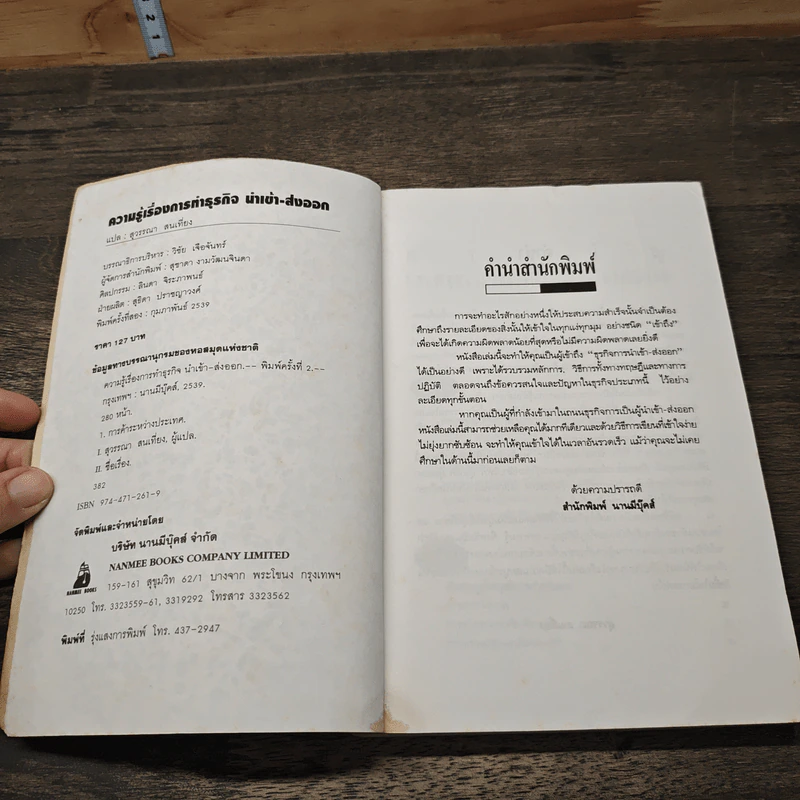 2
1
ความรู้เรื่องการทำธุรกิจ นำเข้า-ส่งออก
แปล : สุวรรณา สนเที่ยง
บรรณาธิการบริหาร : วิชัย เจือจันทร์
ผู้จัดการสำนักพิมพ์ : สุชาดา งามวัฒนจินดา
ศิลปกรรม : ลินดา จิระภาพนธ์
ฝ่ายผลิต : สุธิดา ปราชญาวงศ์
พิมพ์ครั้งที่สอง : กุมภาพันธ์ 2539
ราคา 127 บาท
ข้อมูลทางบรรณานุกรมของหอสมุดแห่งชาติ
ความรู้เรื่องการทำธุรกิจ นำเข้า-ส่งออก.-- พิมพ์ครั้งที่ 2.--
กรุงเทพฯ : นานมีบุ๊คส์, 2539.
280 หน้า.
1. การค้าระหว่างประเทศ.
I. สุวรรณา สนเที่ยง, ผู้แปล.
II. ชื่อเรื่อง.
382
ISBN 974-471-261-9
จัดพิมพ์และจำหน่ายโดย
บริษัท นานมีบุ๊คส์ จำกัด
NANMEE BOOKS COMPANY LIMITED
NANMEE BOOKS
159-161 สุขุมวิท 62/1 บางจาก พระโขนง กรุงเทพฯ
10250 โทร. 3323559-61, 3319292 โทรสาร 3323562
พิมพ์ที่ รุ่งแสงการพิมพ์ โทร. 437-2947
คำนำสำนักพิมพ์
การจะทำอะไรสักอย่างหนึ่งให้ประสบความสำเร็จนั้นจำเป็นต้อง
ศึกษาถึงรายละเอียดของสิ่งนั้นให้เข้าใจในทุกแง่ทุกมุม อย่างชนิด "เข้าถึง"
เพื่อจะได้เกิดความผิดพลาดน้อยที่สุดหรือไม่มีความผิดพลาดเลยยิ่งดี
หนังสือเล่มนี้จะทำให้คุณเป็นผู้เข้าถึง "ธุรกิจการนำเข้า-ส่งออก"
ได้เป็นอย่างดี เพราะได้รวบรวมหลักการ, วิธีการทั้งทางทฤษฎีและทางการ
ปฏิบัติ ตลอดจนถึงข้อควรสนใจและปัญหาในธุรกิจประเภทนี้ ไว้อย่าง
ละเอียดทุกขั้นตอน
หากคุณเป็นผู้ที่กำลังเข้ามาในถนนธุรกิจการเป็นผู้นำเข้า-ส่งออก
หนังสือเล่มนี้สามารถช่วยเหลือคุณได้มากทีเดียวและด้วยวิธีการเขียนที่เข้าใจง่าย
ไม่ยุ่งยากซับซ้อน จะทำให้คุณเข้าใจได้ในเวลาอันรวดเร็ว แม้ว่าคุณจะไม่เคย
ศึกษาในด้านนี้มาก่อนเลยก็ตาม
ด้วยความปรารถดี
สำนักพิมพ์ นานมีบุ๊คส์